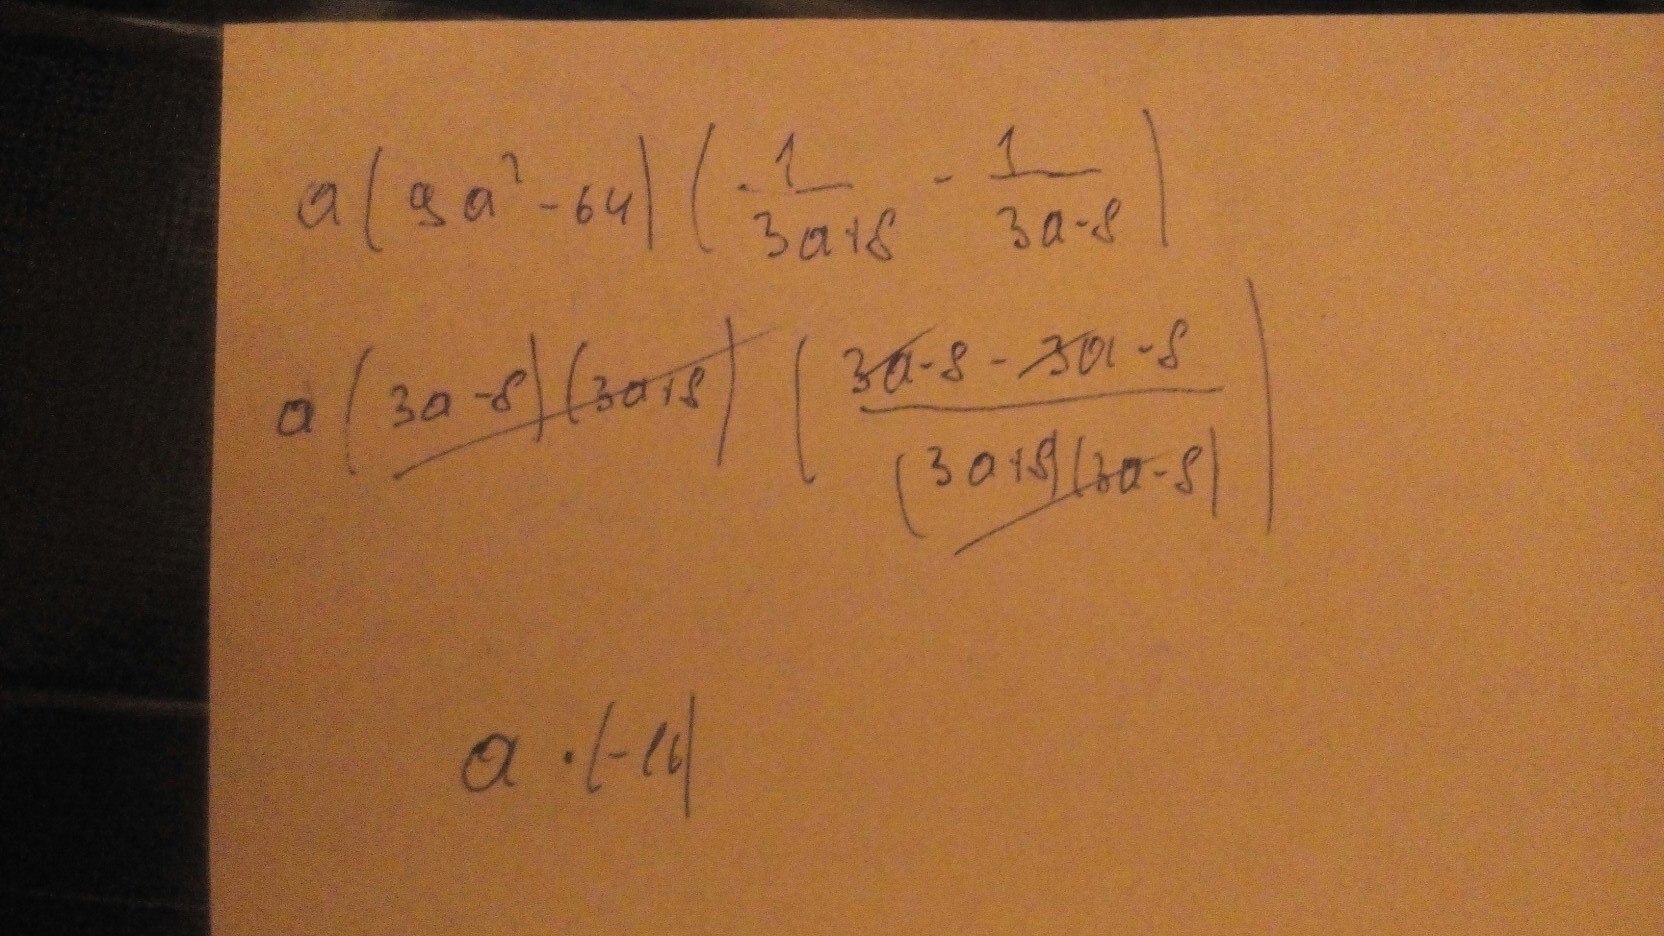 a(9a²-64)(1/(3a+8) - 1/(3a-8))
a(3a-8)(3a+8)((3a-8-3a-8)/((3a+8)(3a-8)))
a·(-16)